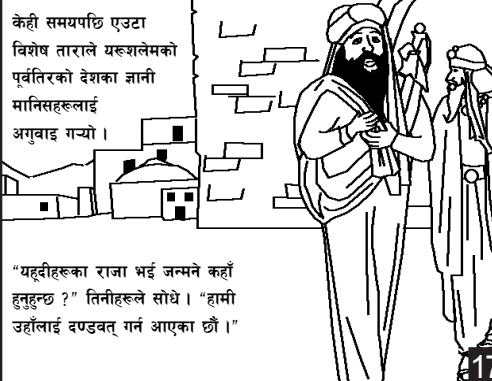 केही समयपछि एउटा
विशेष ताराले यरूशलेमको
पूर्वतिरको देशका ज्ञानी
मानिसहरूलाई
अगुवाइ गऱ्यो ।
“यहूदीहरूका राजा भई जन्मने कहाँ
हुनुहुन्छ ?” तिनीहरूले सोधे । “हामी
उहाँलाई दण्डवत् गर्न आएका छौं ।”